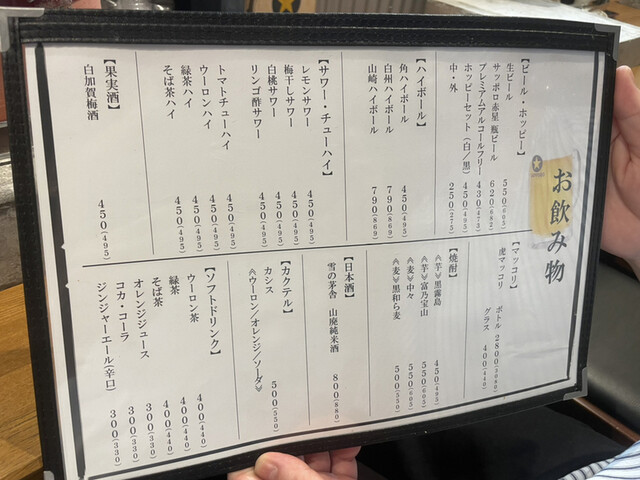 お飲み物
【ビール・ホッピー】
生ビール 550(605)
サッポロ赤星 瓶ビール 620(682)
プレミアムアルコールフリー 430(473)
ホッピーセット(白/黒) 450(495)
中・外 250(275)
【ハイボール】
角ハイボール 450(495)
白州ハイボール 790(869)
山崎ハイボール 790(869)
【サワー・チューハイ】
レモンサワー 450(495)
梅干しサワー 450(495)
白桃サワー 450(495)
リンゴ酢サワー 450(495)
トマトチューハイ 450(495)
ウーロンハイ 450(495)
緑茶ハイ 450(495)
そば茶ハイ 450(495)
【果実酒】
白加賀梅酒 450(495)
【マッコリ】
虎マッコリ ボトル 2800(3080)
グラス 400(440)
【焼酎】
《芋》黒霧島 450(495)
《芋》富乃宝山 550(605)
《麦》中々 550(605)
《麦》黒和ら麦 500(550)
【日本酒】
雪の茅舎 山廃純米酒 800(880)
【カクテル】
カシス 500(550)
《ウーロン/オレンジ/ソーダ》
【ソフトドリンク】
ウーロン茶 400(440)
緑茶 400(440)
そば茶 400(440)
オレンジジュース 300(330)
コカ・コーラ 300(330)
ジンジャーエール(辛口) 300(330)